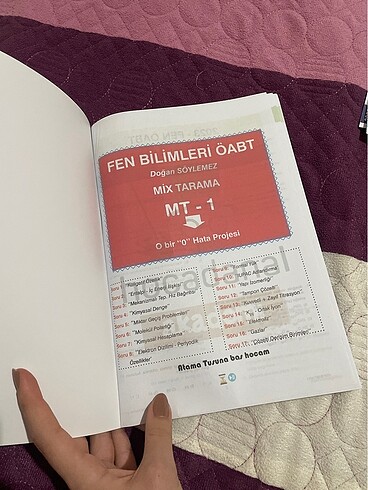 FEN BİLİMLERİ ÖABT
Doğan SÖYLEMEZ
MİX TARAMA
MT - 1
O bir "0" Hata Projesi
Soru 1: "Koligatif Özellik"
Soru 2: "Entalpi - İç Enerji İlişkisi"
Soru 3: "Mekanizmalı Tep. Hız Bağıntısı"
Soru 4: "Kimyasal Denge"
Soru 5: "Miktar Geçiş Problemleri"
Soru 6: "Molekül Polarlığı"
Soru 7: "Kimyasal Hesaplama"
Soru 8: "Elektron Dizilimi - Periyodik
Özellikler"
Soru 9: "Formal Yük"
Soru 10: "IUPAC Adlandırma"
Soru 11: "Yapı İzomerliği"
Soru 12: "Tampon Çözelti"
Soru 13: "Kuvvetli + Zayıf Titrasyon"
Soru 14: "Ortak İyon"
Soru 16: "Gazlar"
Soru 17: "Çözelti Derişim Birimleri"
Atama Tusuna bas hocam